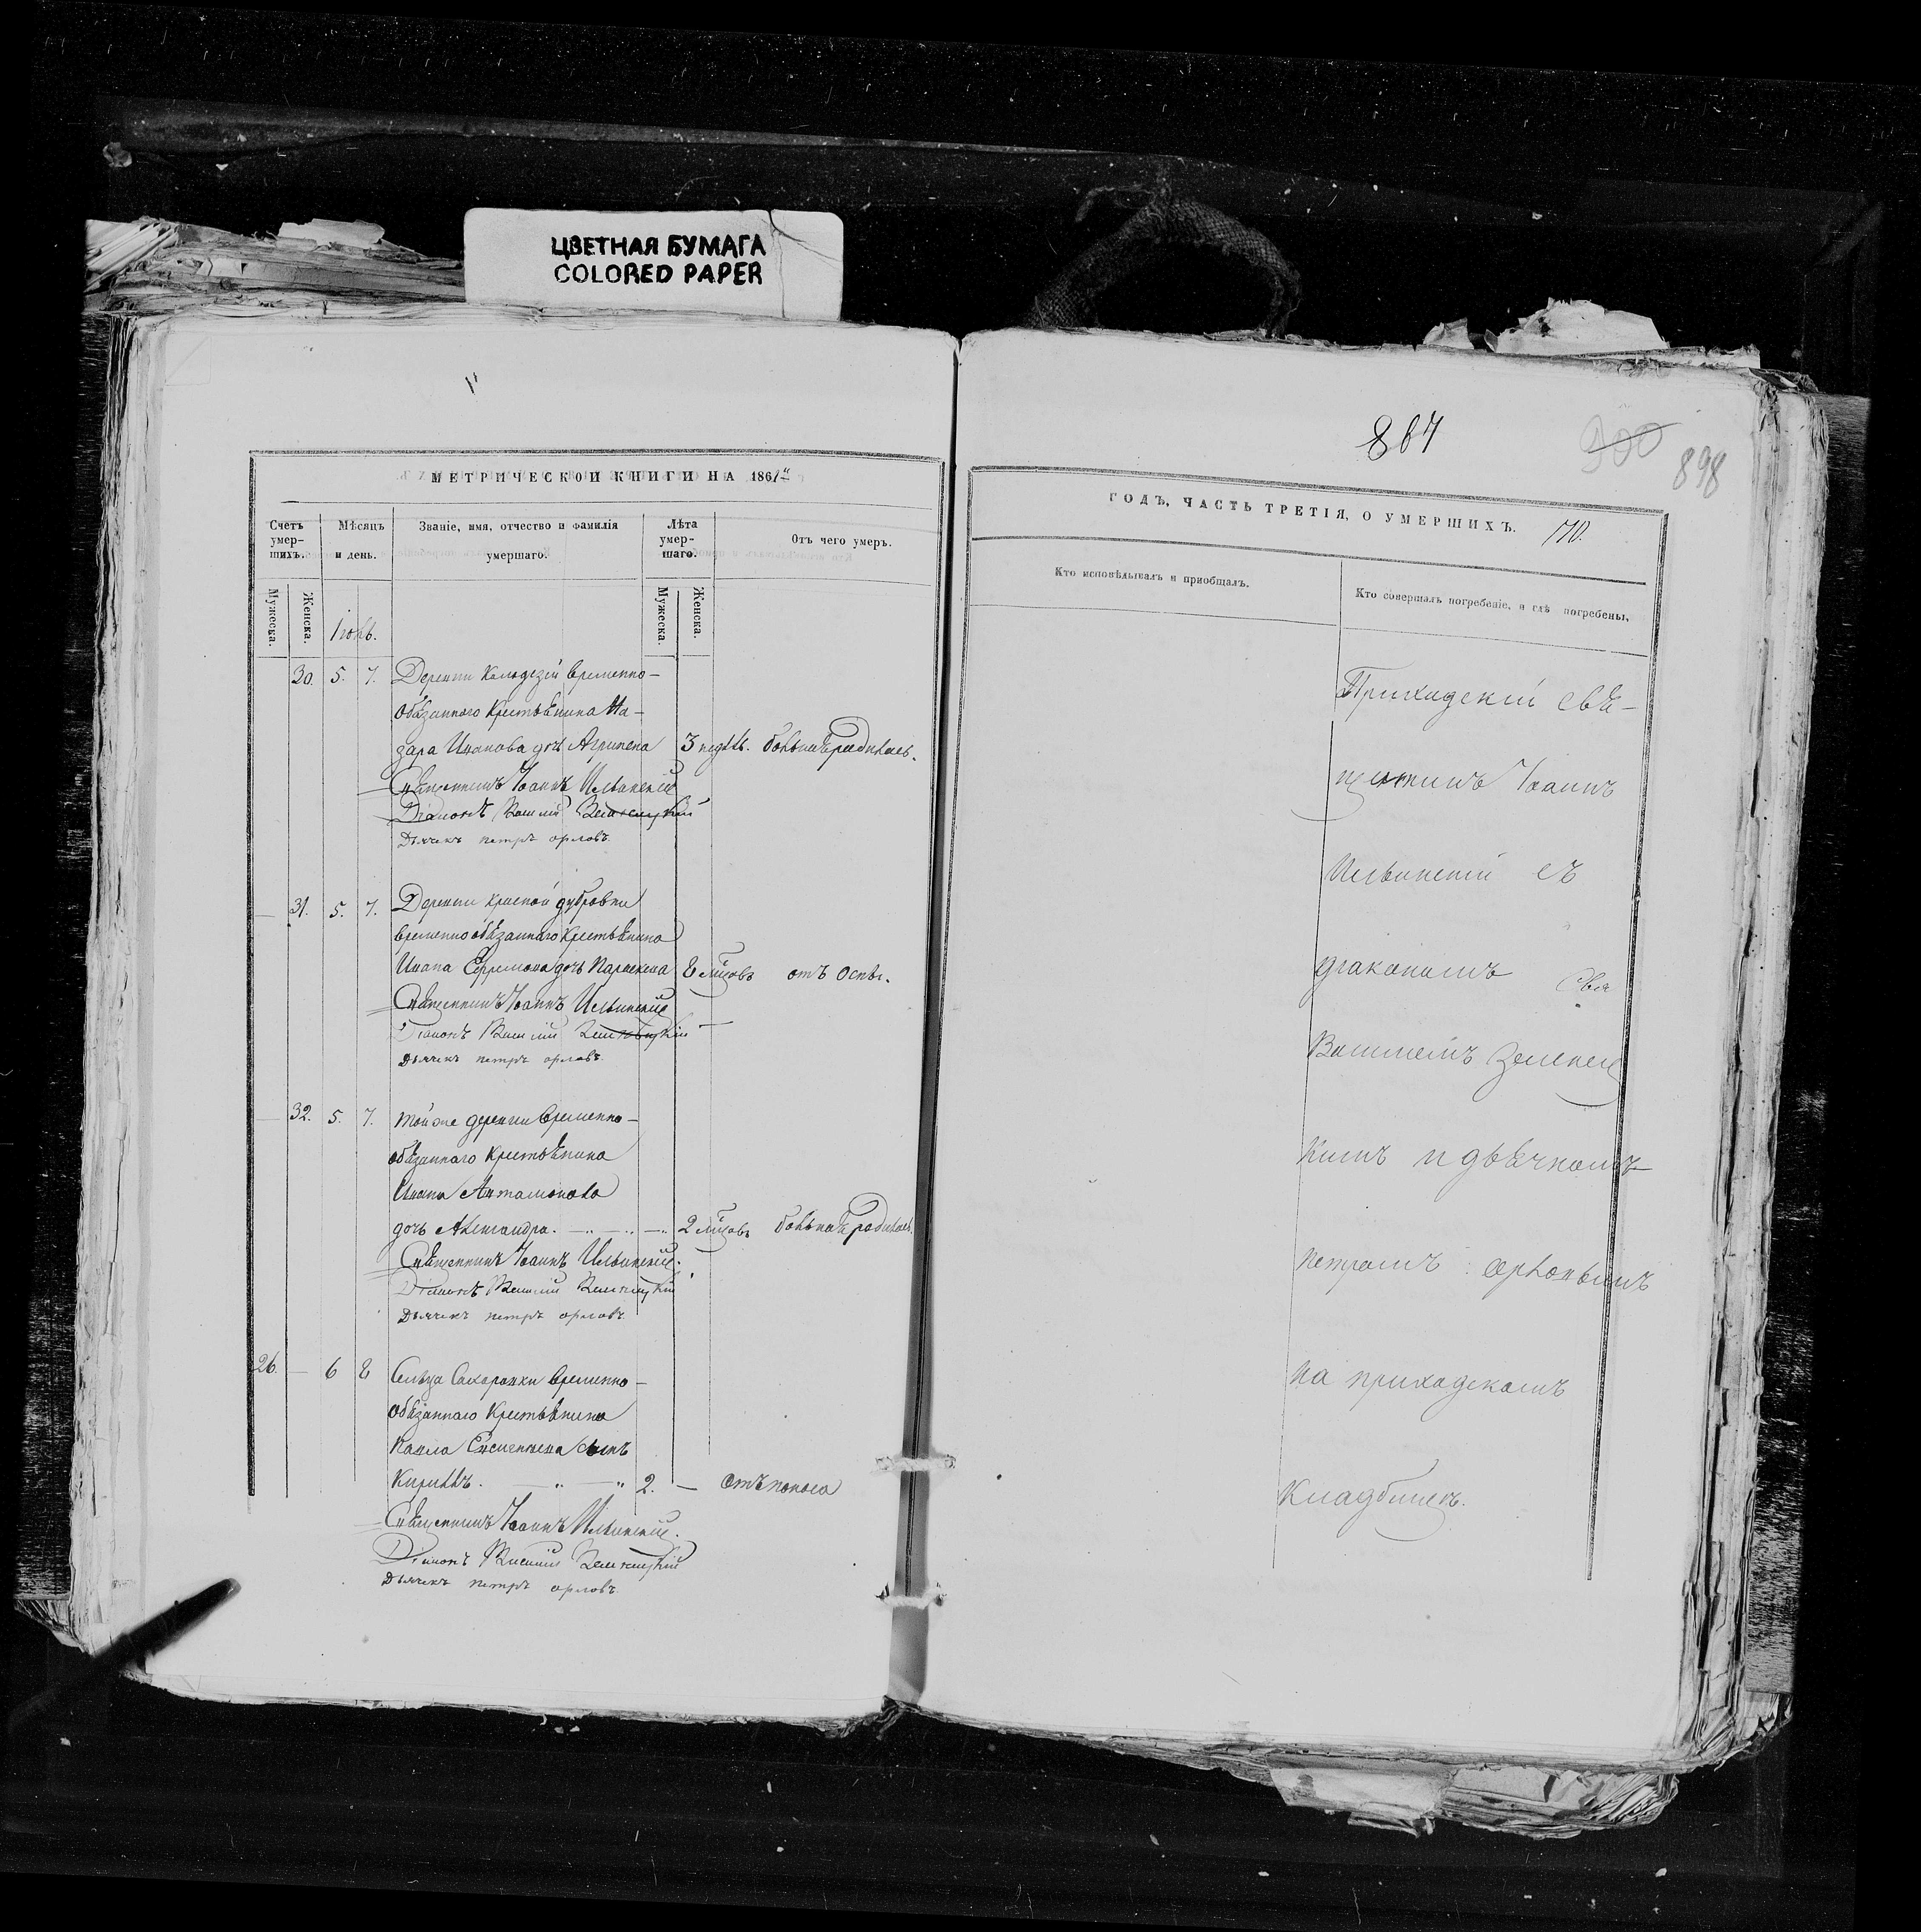 ЦВЕТНАЯ БУМАГА
COLORED PAPER
867
900
898
МЕТРИЧЕСКОЙ КНИГИ НА 1861й
ГОДЪ, ЧАСТЬ ТРЕТІЯ, О УМЕРШИХЪ. 170.
Счетъ умер-шихъ.
Мѣсяцъ и день.
Званіе, имя, отчество и фамилія умершаго.
Лѣта умер-шаго.
Отъ чего умеръ.
Мужеска.
Женска.
Мужеска.
Женска.
Іюнь.
30. 5. 7. Деревни Колодезей временно-
обязаннаго Крестьянина На-
зара Иванова дочь Агрипена 3 недѣль.
Священникъ Іоаннъ Ильинскій
Діаконъ Василій
Дьячекъ петръ орловъ.
— 31. 5. 7. Деревни Красной дубровки
временнообязаннаго Крестьянина
Ивана Ефремова дочь Параскева 8 мѣсяцовъ отъ Оспы.
Священникъ Іоаннъ Ильинскій
Діаконъ Василій
дьячекъ петръ орловъ.
— 32. 5. 7. той же деревни Временно-
обязаннаго Крестьянина
Ивана Артамонова
дочь Александра. 2 мѣсяцовъ
Священникъ Іоаннъ Ильинскій.
Діаконъ Василій
дьячекъ петръ орловъ.
26. — 6 8 Сельца Сахаровки Временно-
обязаннаго Крестьянина
Павла сынъ
Кирилъ. 2. — Отъ поноса
Священникъ Іоаннъ Ильинскій.
Діаконъ Василій
Дьячекъ петръ орловъ.
Кто исповѣдывалъ и пріобщалъ.
Кто совершалъ погребеніе, и гдѣ погребены,
Приходскій свя-
щенникъ Іоаннъ
Ильинскій съ
діакономъ
Василіемъ Зеленец
кимъ и дьячкомъ
петромъ орловымъ
на приходскомъ
Кладбищѣ.